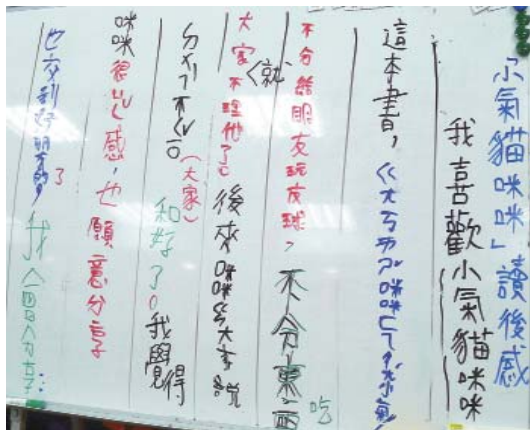 小氣貓咪咪」讀後感
我喜歡小氣貓咪咪
這本書，ㄍㄤㄎㄞㄕˇ咪咪ㄏㄣˇ小氣
不分給朋友玩皮球，不分東西吃
大家就不理他了。後來咪咪ㄍㄣ大家說
ㄉㄨㄟˋ不ㄑㄧˇ。(大家)和好了。我覺得
咪咪很感，也願意分享
也交到好朋友了，我